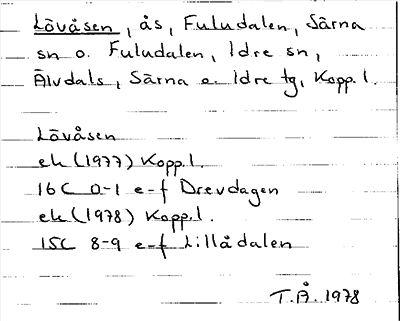 Lövåsen, ås, Fuludalen, Särna
sn o. Fuludalen, Idre sn,
Älvdals, Särna o. Idre tg, Kopp. l.
Lövåsen
ek (1977) Kopp. l.
16C 0-1 e-f Drevdagen
ek (1978) Kopp. l.
15C 8-9 e-f Lillådalen
T.Å. 1978